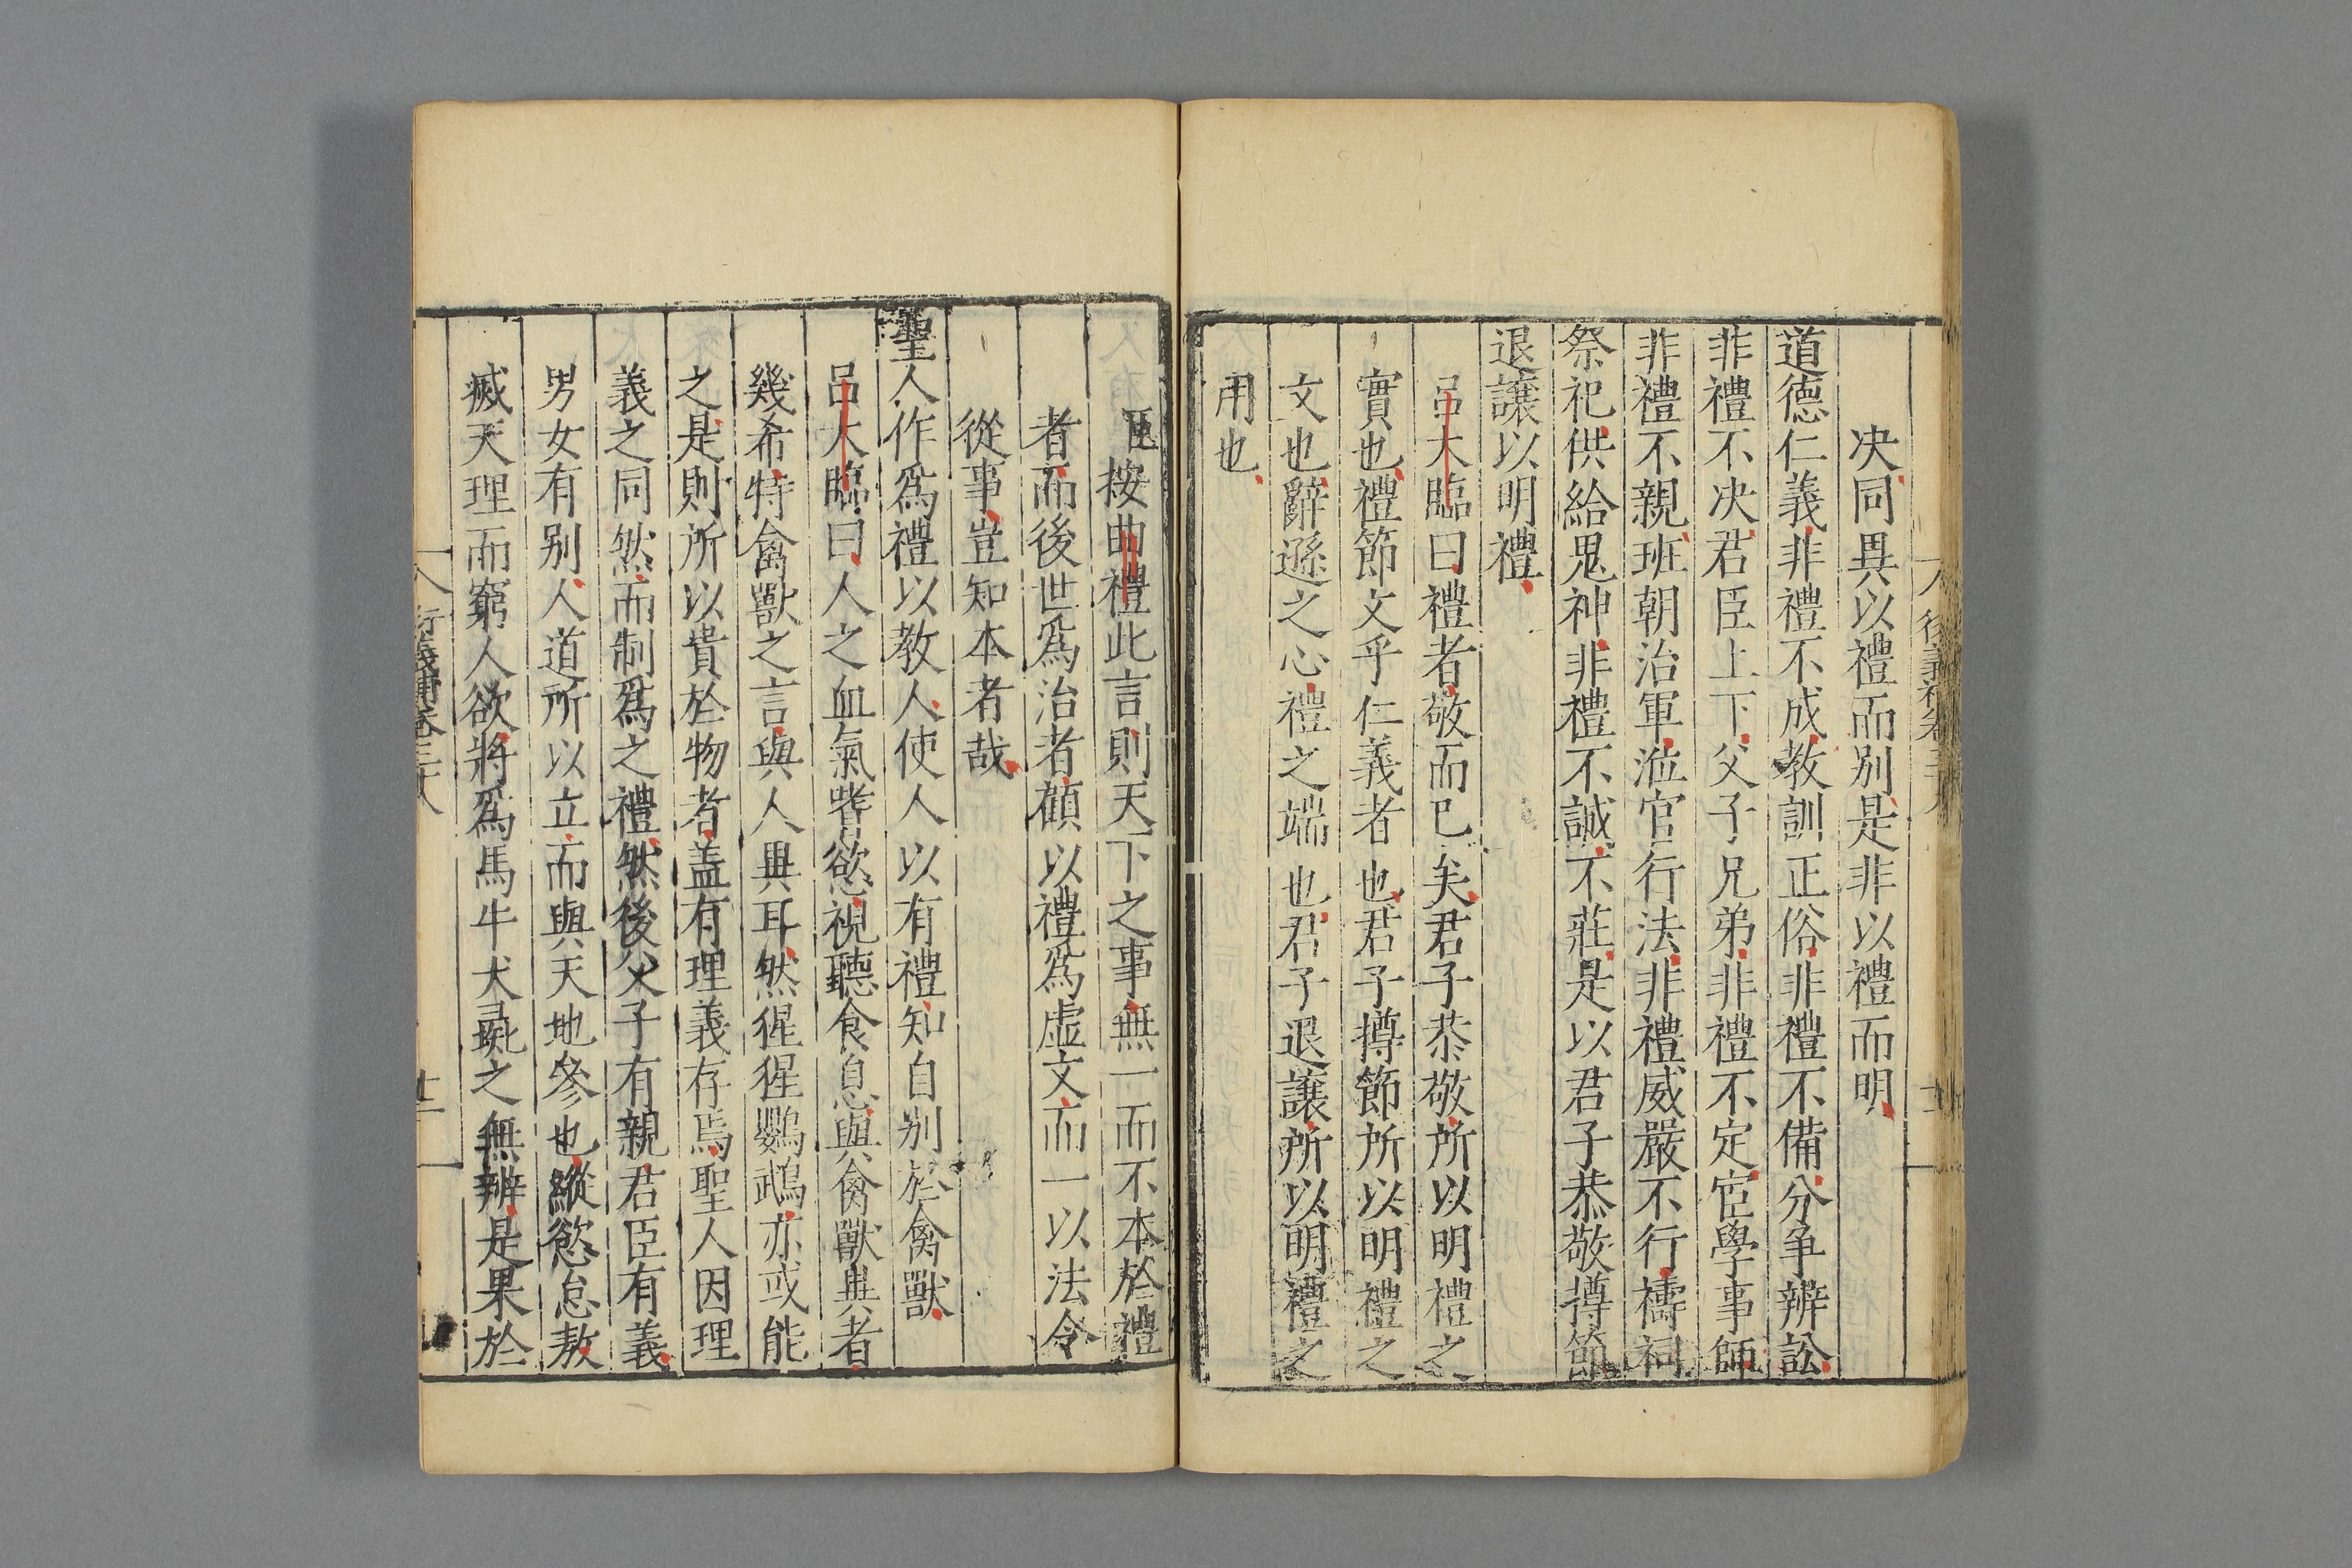 决同異以禮而别是非以禮而明
道德仁義非禮不成教訓正俗非禮不備分争辨訟
非禮不决君臣上下父子兄弟非禮不定宦學事師
非禮不親班朝治軍涖官行法非禮威嚴不行禱祠
祭祀供給鬼神非禮不誠不莊是以君子恭敬撙節
退讓以明禮
吕大臨曰禮者敬而已矣君子恭敬所以明禮之
實也禮節文乎仁義者也君子撙節所以明禮之
文也辭遜之心禮之端也君子退讓所以明禮之
用也
臣按曲禮此言則天下之事無一而不本於禮
者而後世爲治者顧以禮爲虚文而一以法令
從事豈知本者哉
聖人作爲禮以教人使人以有禮知自别於禽獸
吕大臨曰人之血氣嗜慾視聽食息與禽獸異者
幾希特禽獸之言與人異耳然猩猩鸚鵡亦或能
之是則所以貴於物者盖有理義存焉聖人因理
義之同然而制爲之禮然後父子有親君臣有義
男女有别人道所以立而與天地參也縱慾怠敖
滅天理而窮人欲將爲馬牛犬彘之無辨是果於
衍義補卷三十八